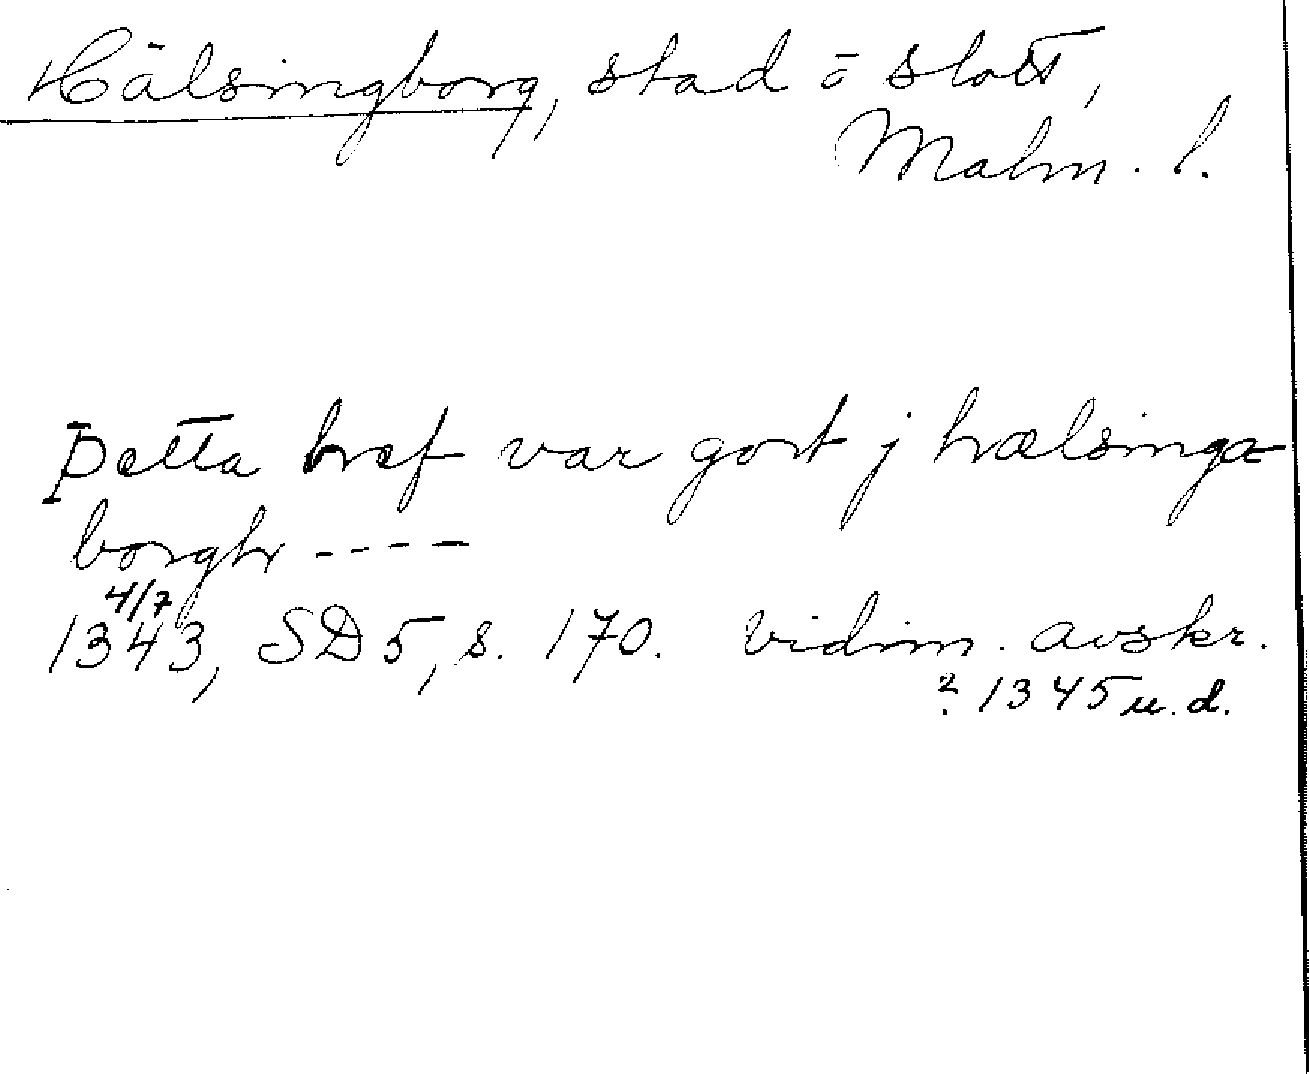 Hälsingborg, stad o slott,
Malm. l.
Þetta bref var gort j hælsinga
borgh ----
4/7
1343, SD 5, s. 170. vidim. avskr.
? 1345 u. d.